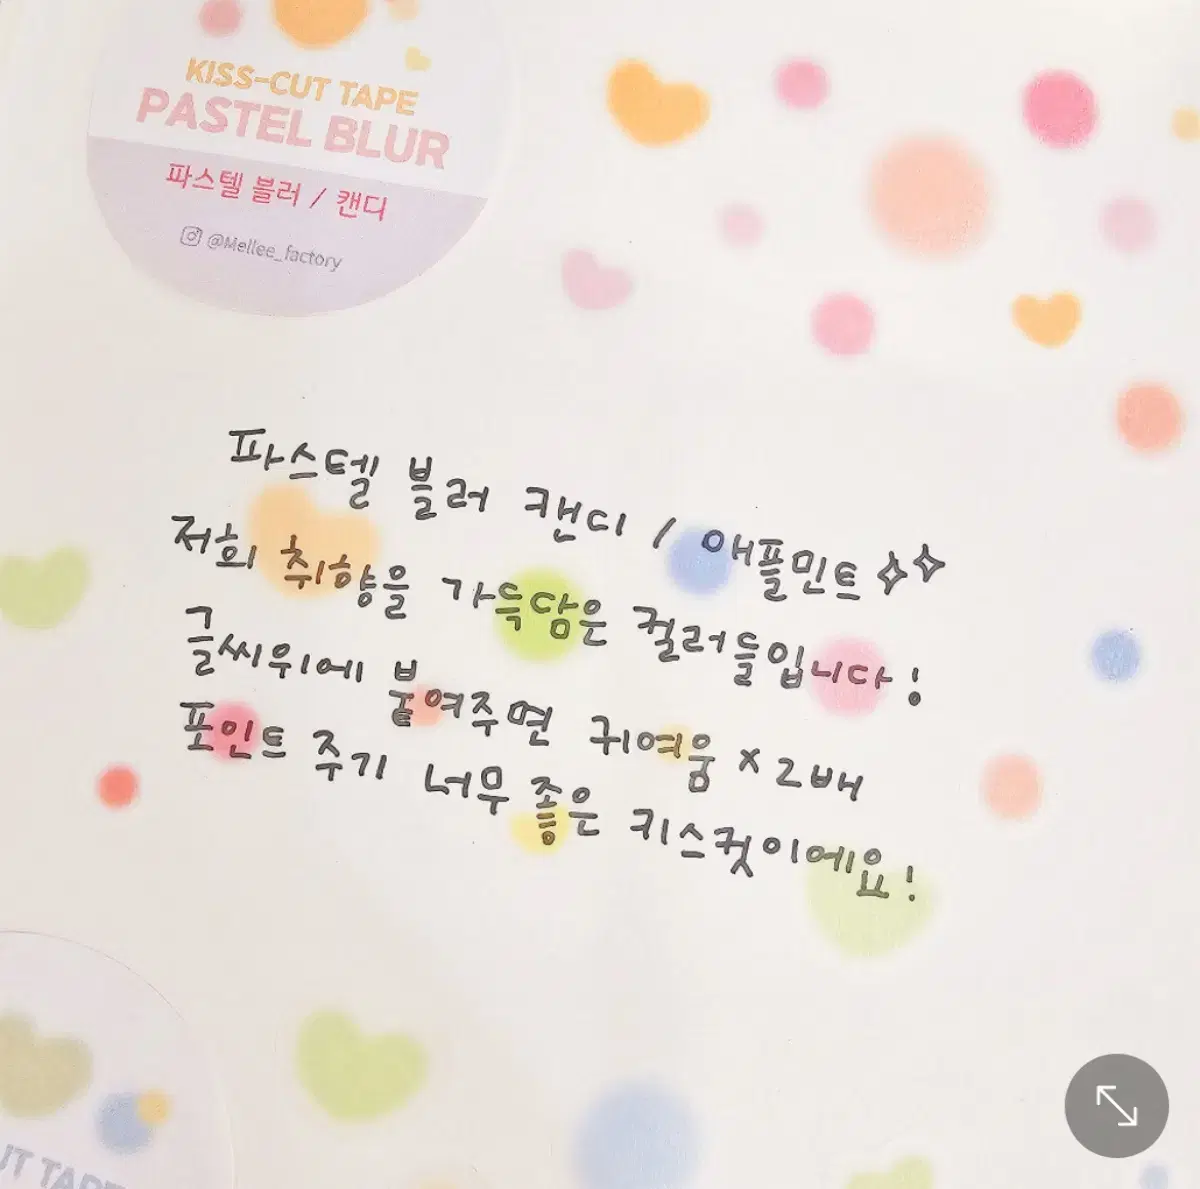 KISS-CUT TAPE
PASTEL BLUR
파스텔 블러 / 캔디
@Mellee_factory
파스텔 블러 캔디 / 애플민트
저희 취향을 가득담은 컬러들입니다!
글씨위에 붙여주면 귀여움 x 2배
포인트 주기 너무 좋은 키스컷이에요!
UT TAPE